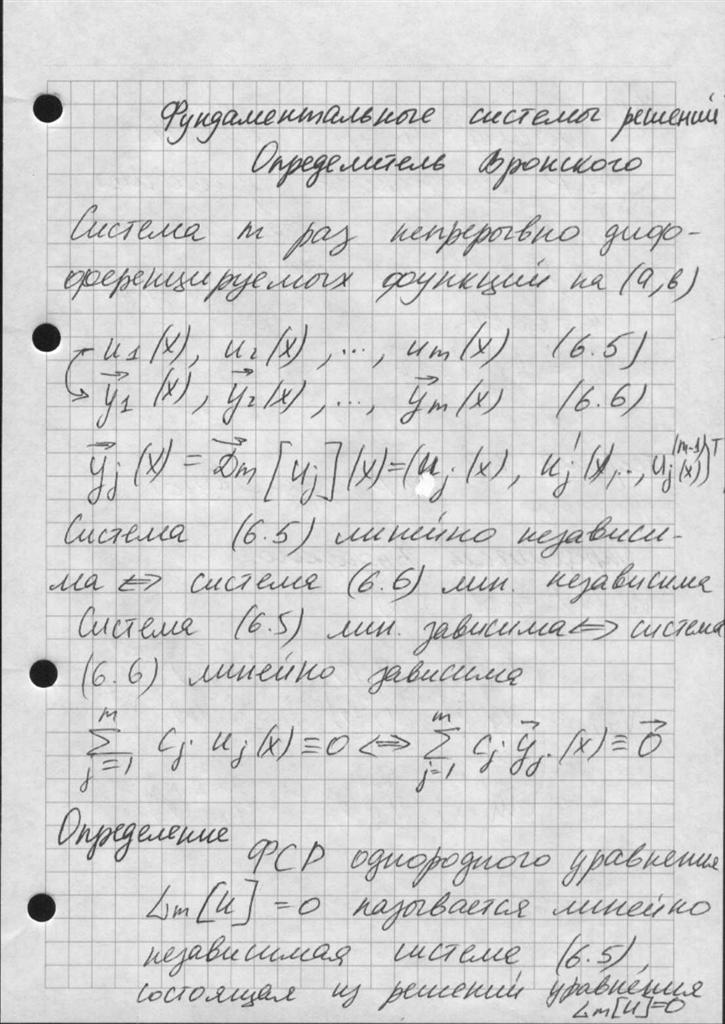 Фундаментальные системы решений
Определитель Вронского
Система m раз непрерывно диф-
ференцируемых функций на (a,b)
u₁(x), u₂(x), ..., uₘ(x) (6.5)
y⃗₁(x), y⃗₂(x), ..., y⃗ₘ(x) (6.6)
y⃗ⱼ(x) = D⃗ₘ[uⱼ](x)=(uⱼ(x), uⱼ'(x),..,uⱼ⁽ᵐ⁻¹⁾(x))ᵀ
Система (6.5) линейно независи-
ма ⇔ система (6.6) лин. независима
Система (6.5) лин. зависима ⇔ система
(6.6) линейно зависима
∑ⱼ₌₁ᵐ cⱼ uⱼ(x) ≡ 0 ⇔ ∑ⱼ₌₁ᵐ cⱼ y⃗ⱼ(x) ≡ 0⃗
Определение
ФСР однородного уравнения
Lₘ[u] = 0 называется линейно
независимая система (6.5),
состоящая из решений уравнения
Lₘ[u]=0